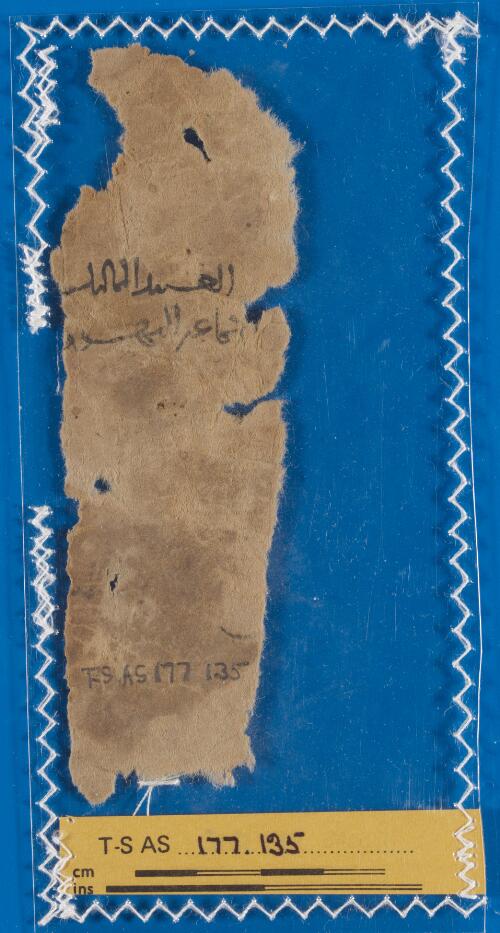 العبيد المماليك
جماعة اليهود
T-S AS 177 135
T-S AS ...177..135...
cm
ins